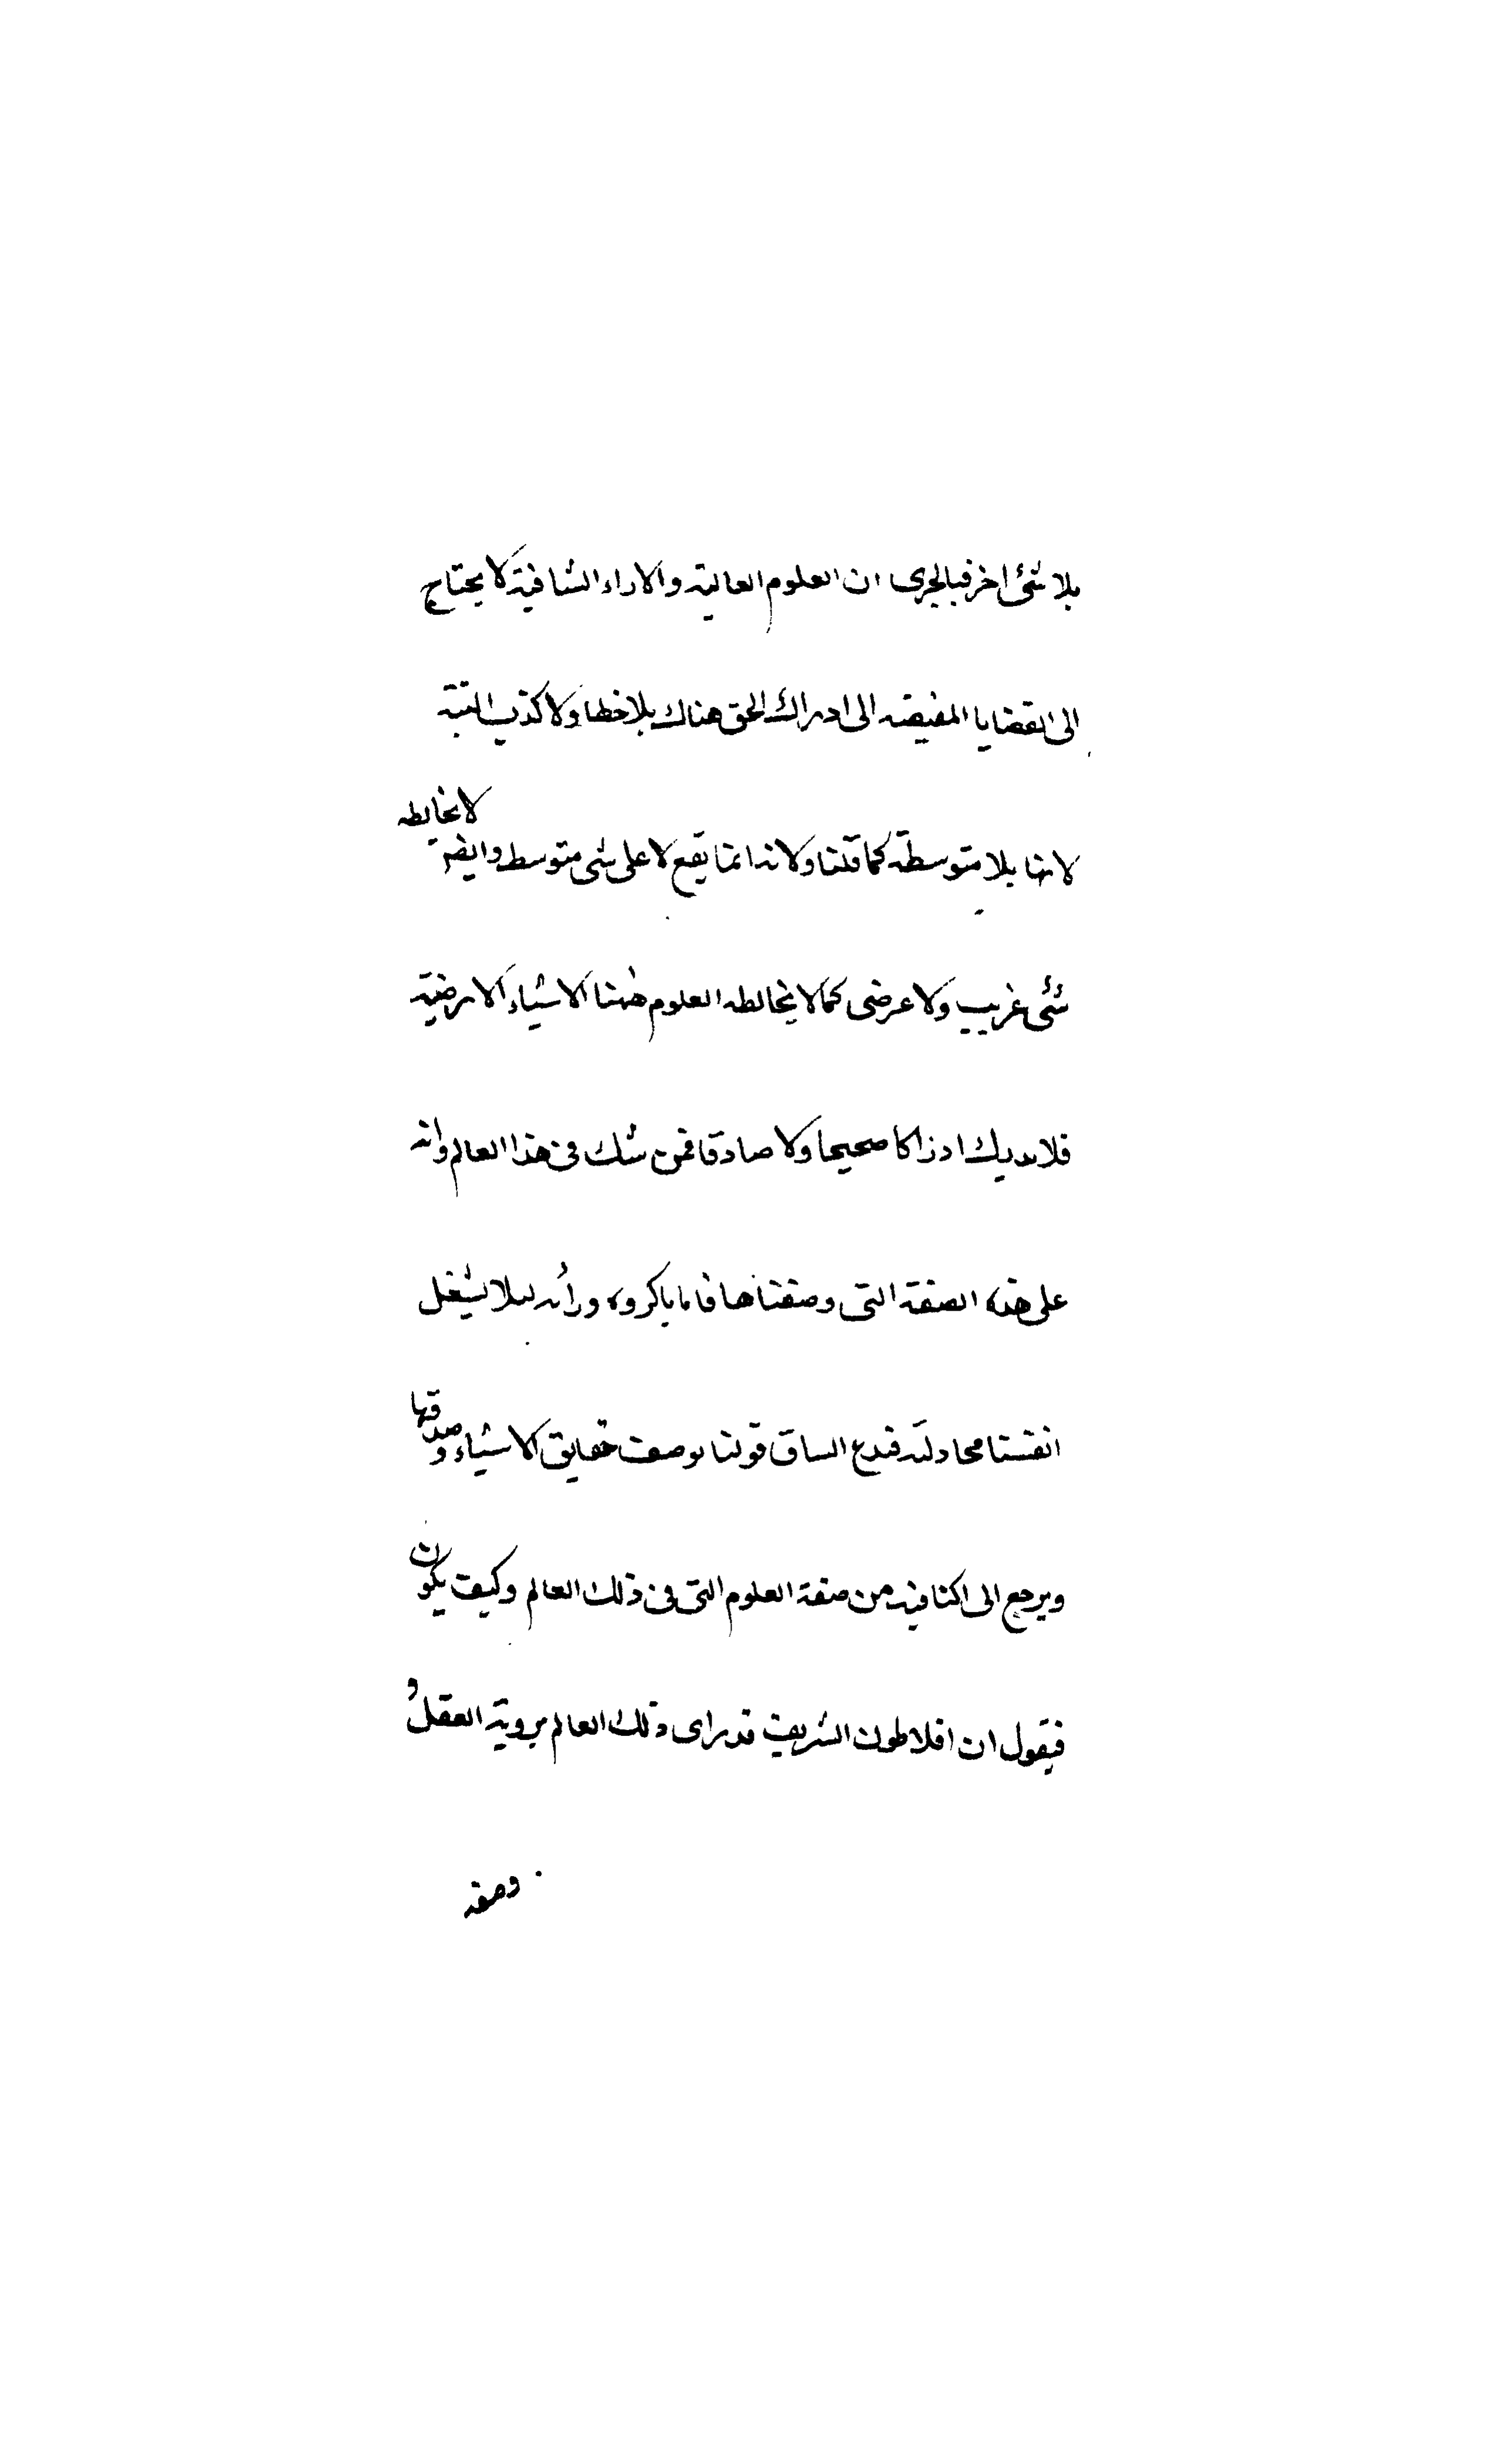 بلا شئ اخر فبالحرى ان العلوم العالية والاراء الشافية لا يحتاج
الى القضايا المفيضه الى ادراك الحق هناك بلا خطا ولا كذب البتة
لانها بلا متوسطة كما قلنا ولانه انما يقع لا على شى متوسط وايضا لا يخالطه
شئ غريب ولا عرضى كما لا يخالطه العلوم ههنا الاشياء الارضية
فلا ادراكا صحيحا ولا صادقا فمن شك فى هذا العالم وانه
على هذه الصفة التى وصفناها فانا وراٌيه ليلا يشغل
انفسنا فندع قولنا بوصف حقايق الاشياء وصدقها
ويرجع الى ما كنا فيه من صفة العلوم التى فى ذلك العالم وكيف يكون
فيقول ان افلاطون الشريف قد راى ذلك العالم بروية العقل و
وصفه